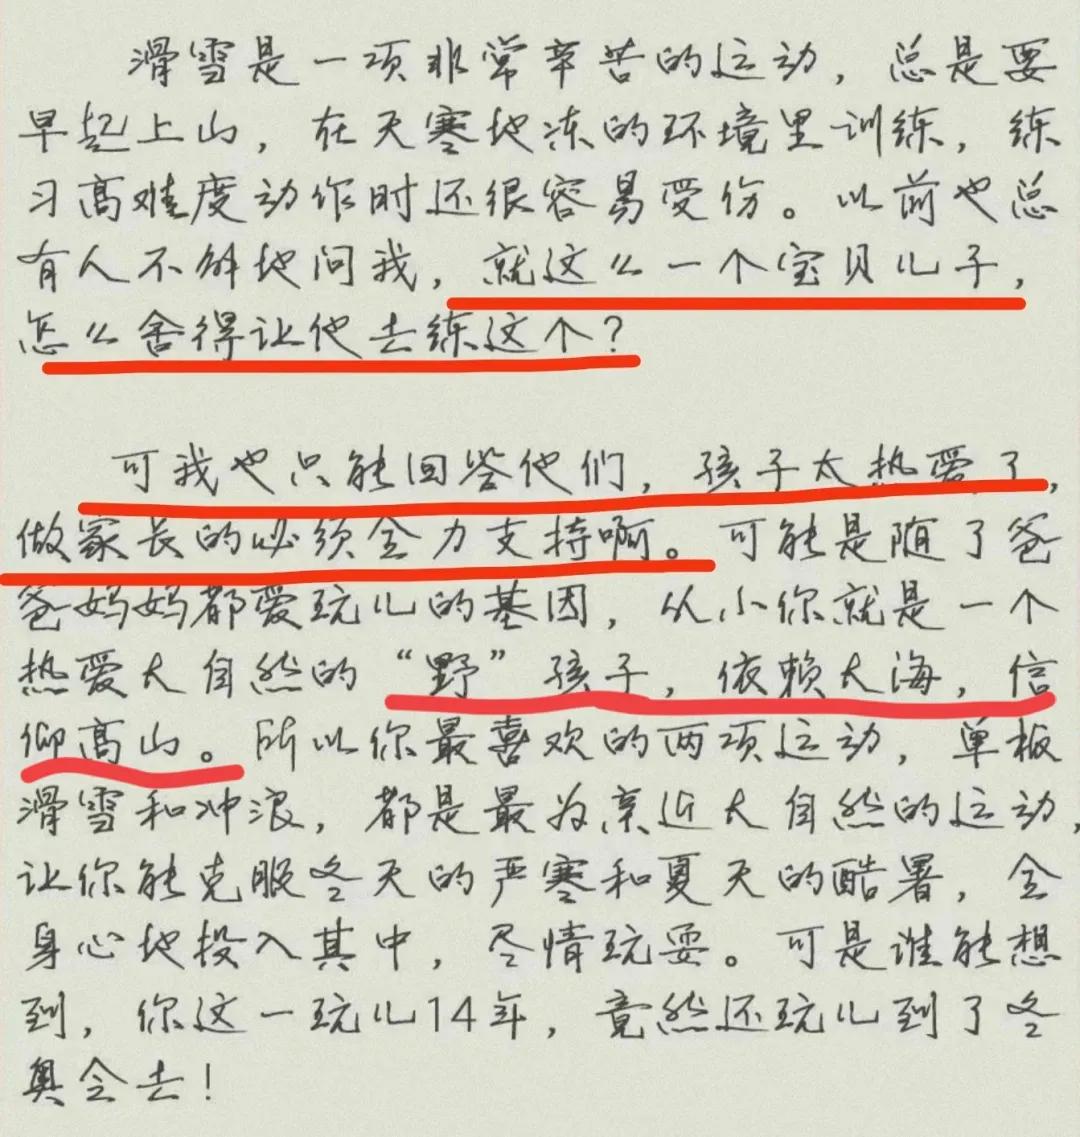 滑雪是一项非常辛苦的运动，总是要
早起上山，在天寒地冻的环境里训练，练
习高难度动作时还很容易受伤。以前也总
有人不解地问我，就这么一个宝贝儿子，
怎么舍得让他去练这个？
可我也只能回答他们，孩子太热爱了，
做家长的必须全力支持啊。可能是随了爸
爸妈妈都爱玩儿的基因，从小你就是一个
热爱大自然的“野”孩子，依赖大海，信
仰高山。所以你最喜欢的两项运动，单板
滑雪和冲浪，都是最为亲近大自然的运动，
让你能克服冬天的严寒和夏天的酷暑，全
身心地投入其中，尽情玩耍。可是谁能想
到，你这一玩儿14年，竟然还玩儿到了冬
奥会去！